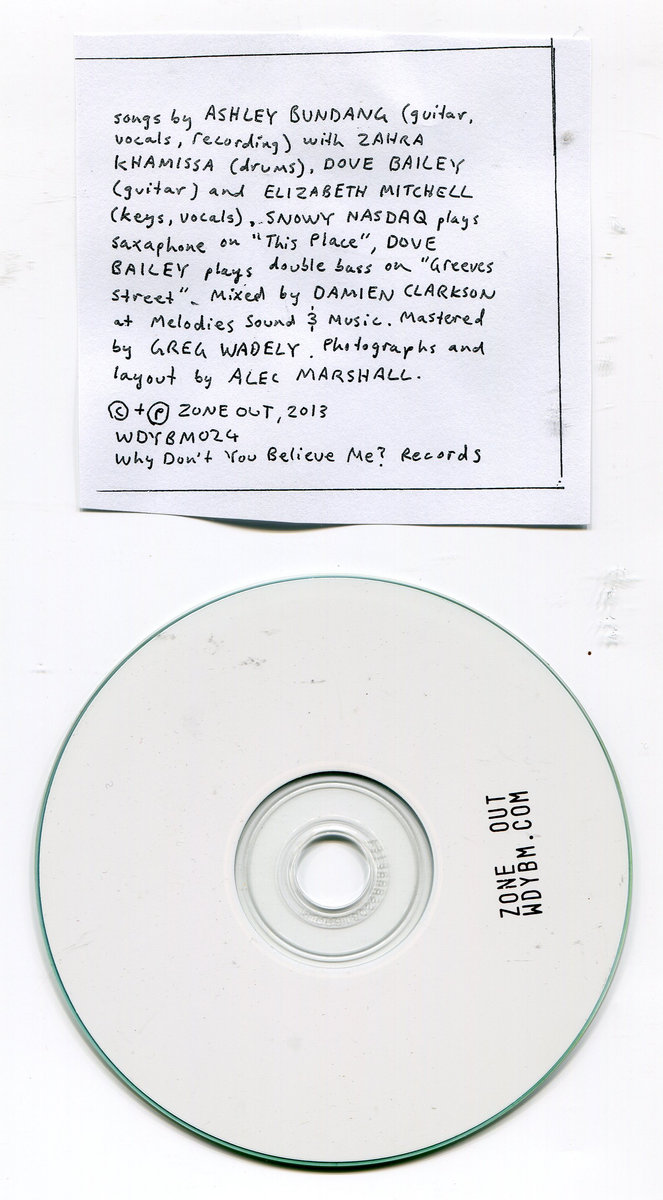 songs by ASHLEY BUNDANG (guitar,
vocals, recording) with ZAHRA
KHAMISSA (drums), DOVE BAILEY
(guitar) and ELIZABETH MITCHELL
(keys, vocals). SNOWY NASDAQ plays
saxaphone on "This Place", DOVE
BAILEY plays double bass on "Greeves
Street". Mixed by DAMIEN CLARKSON
at Melodies Sound & Music. Mastered
by GREG WADELY. Photographs and
layout by ALEC MARSHALL.
© + ℗ ZONE OUT, 2013
WDYBM024
Why Don't You Believe Me? Records
ZONE OUT
WDYBM.COM